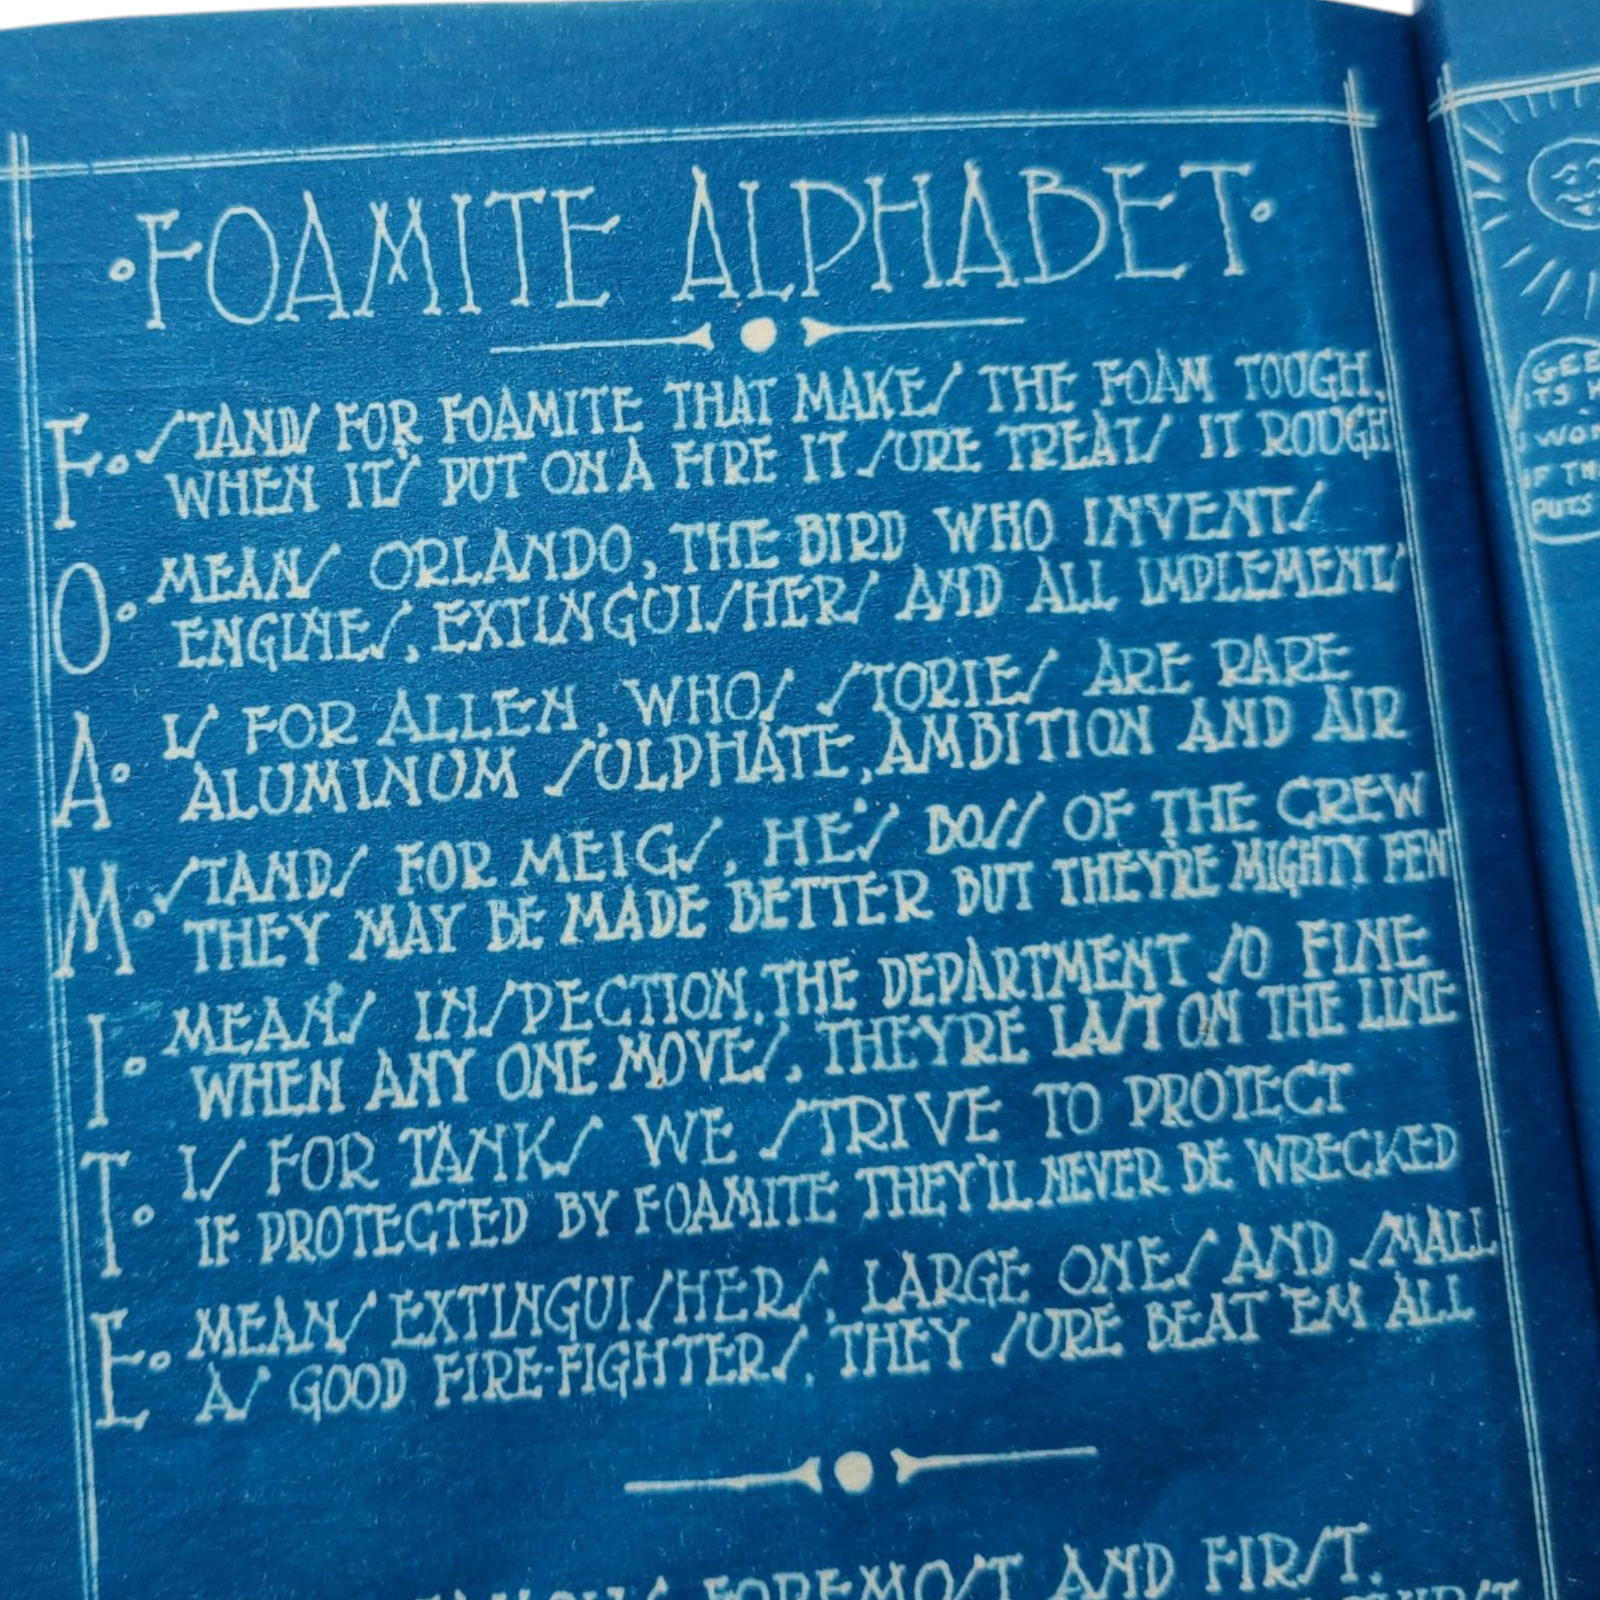 ·FOAMITE ALPHABET·
F. STANDS FOR FOAMITE THAT MAKES THE FOAM TOUGH,
WHEN IT'S PUT ON A FIRE IT SURE TREATS IT ROUGH
O. MEANS ORLANDO, THE BIRD WHO INVENTS
ENGINES, EXTINGUISHERS AND ALL IMPLEMENTS
A. IS FOR ALLEN, WHOS STORIES ARE RARE
ALUMINUM SULPHATE, AMBITION AND AIR
M. STANDS FOR MEIGS, HE'S BOSS OF THE CREW
THEY MAY BE MADE BETTER BUT THEY'RE MIGHTY FEW
I. MEANS INSPECTION, THE DEPARTMENT SO FINE
WHEN ANY ONE MOVES, THEYRE LAST ON THE LINE
T. IS FOR TANKS WE STRIVE TO PROTECT
IF PROTECTED BY FOAMITE THEY'LL NEVER BE WRECKED
E. MEANS EXTINGUISHERS, LARGE ONES AND SMALL
AS GOOD FIRE-FIGHTERS, THEY SURE BEAT 'EM ALL
FOREMOST AND FIRST,
GEE
ITS
I WON
IF
PUTS